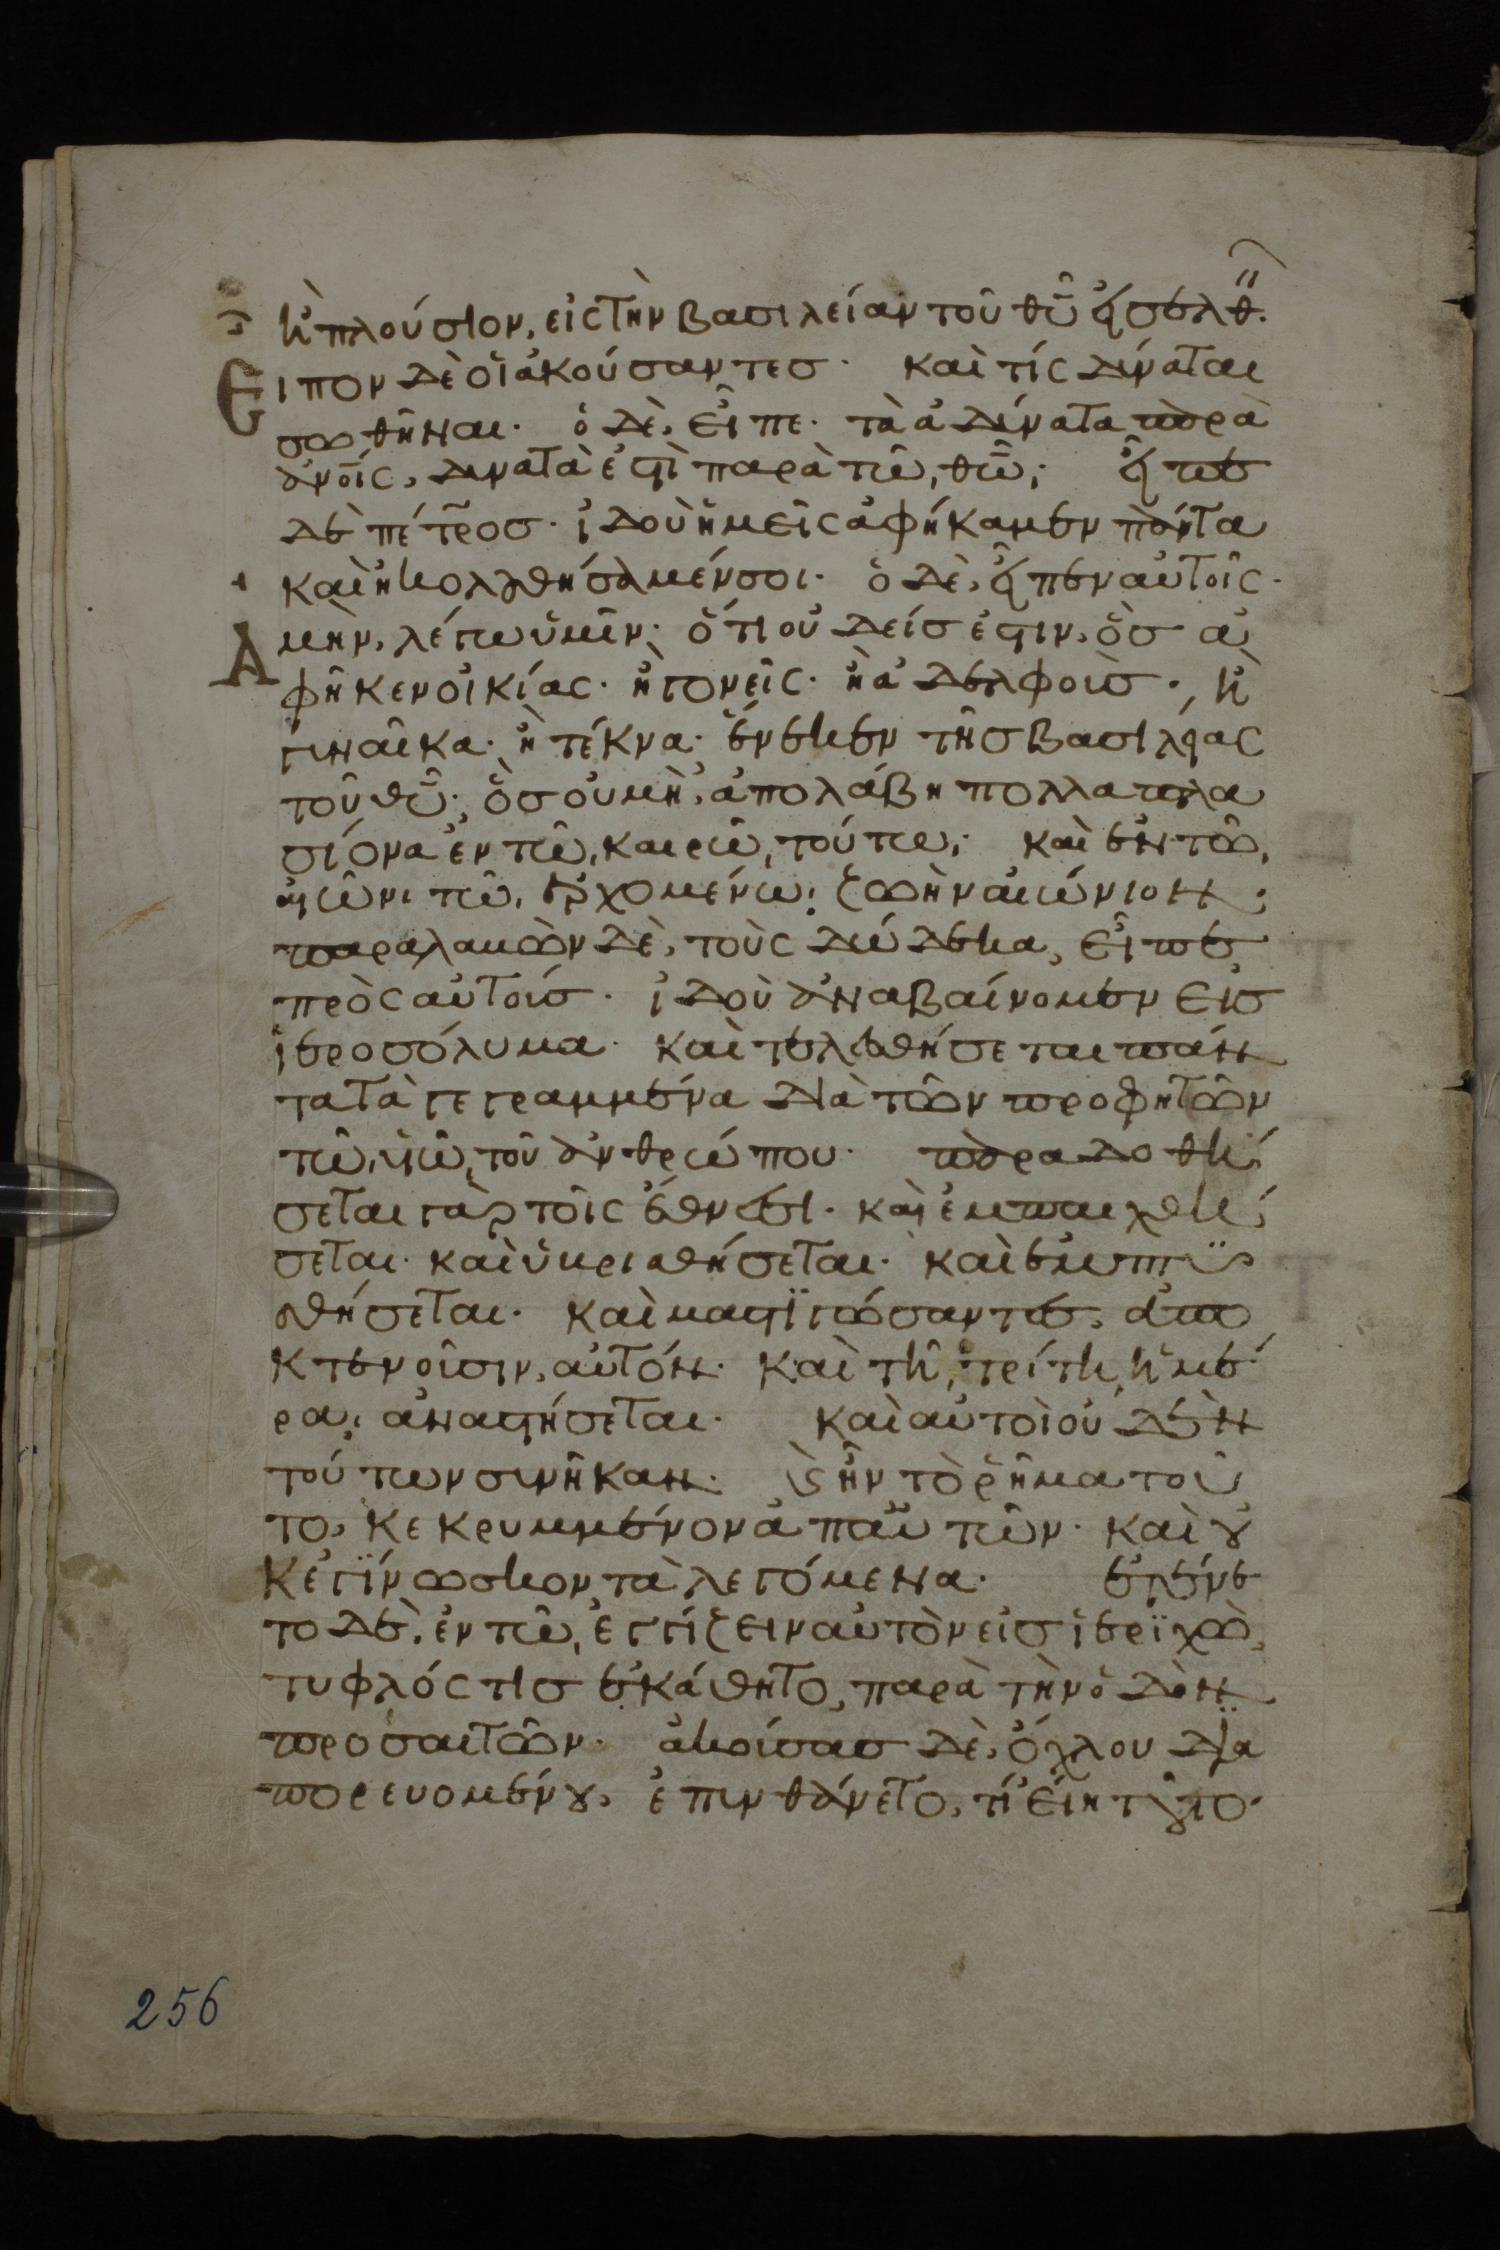 ἢ πλούσιον, εἰς τὴν βασιλείαν τοῦ θῦ εἰσελθ.
Εἶπον δὲ οἱ ἀκούσαντεσ· καὶ τίς δύναται
σωθῆναι· ὁ δὲ, εἶπε· τὰ ἀδύνατα παρὰ
ἀνοῖς, δυνατὰ ἐστὶ παρὰ τῶ θῶ· εἶπε
δὲ πέτροσ· ἰδοὺ ἡμεῖς ἀφήκαμεν πάντα
καὶ ἠκολουθήσαμέν σοι· ὁ δὲ, εἶπεν αὐτοῖς·
Αμὴν, λέγω ὑμῖν· ὅτι οὐδείσ ἐστιν, ὅσ ἀ
φῆκεν οἰκίας· ἢ γονεῖς· ἢ ἀδελφοὺσ· ἢ
γυναῖκα· ἢ τέκνα· ἕνεκεν τῆσ βασιλείας
τοῦ θῦ· ὃσ οὐ μὴ, ἀπολάβη πολλαπλα
σίονα ἐν τῶ καιρῶ τούτω· καὶ ἐν τῶ
αἰῶνι τῶ ἐρχομένω· ζωὴν αἰώνιον·
παραλαβὼν δὲ, τοὺς δώδεκα, εἶπε
πρὸς αὐτούσ· ἰδοὺ ἀναβαίνομεν εἰσ
ἱεροσόλυμα· καὶ τελεσθήσεται πάν
τα τὰ γεγραμμένα διὰ τῶν προφητῶν
τῶ υἱῶ τοῦ ἀνθρώπου· παραδοθή
σεται γὰρ τοῖς ἔθνεσι· καὶ ἐμπαιχθή
σεται· καὶ ὑβρισθήσεται· καὶ ἐμπτυ
σθήσεται· καὶ μαστϊγώσαντες, ἀπο
κτενοῦσιν, αὐτόν· καὶ τῆ τρίτη ἡμέ
ρα, ἀναστήσεται· καὶ αὐτοὶ οὐδὲν
τούτων συνῆκαν· καὶ ἦν τὸ ῥῆμα τοῦ
το, κεκρυμμένον ἀπ αὐτῶν· καὶ οὐ
κ ἐγίνωσκον τὰ λεγόμενα· ἐγένε
το δὲ, ἐν τῶ ἐγγίζειν αὐτὸν εἰσ ἱερϊχὼ,
τυφλός τισ ἐκάθητο, παρὰ τὴν ὁδὸν
προσαιτῶν· ἀκούσασ δὲ, ὄχλου δϊα
πορευομένου, ἐπυνθάνετο, τί εἴη τοῦτο·
256